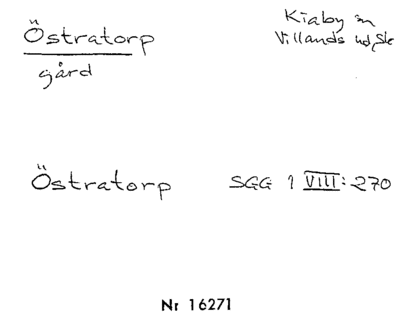 Östratorp
gård
Kiaby sn
Villands hd, Sk
Östratorp SGG 1 VIII:270
Nr 16271